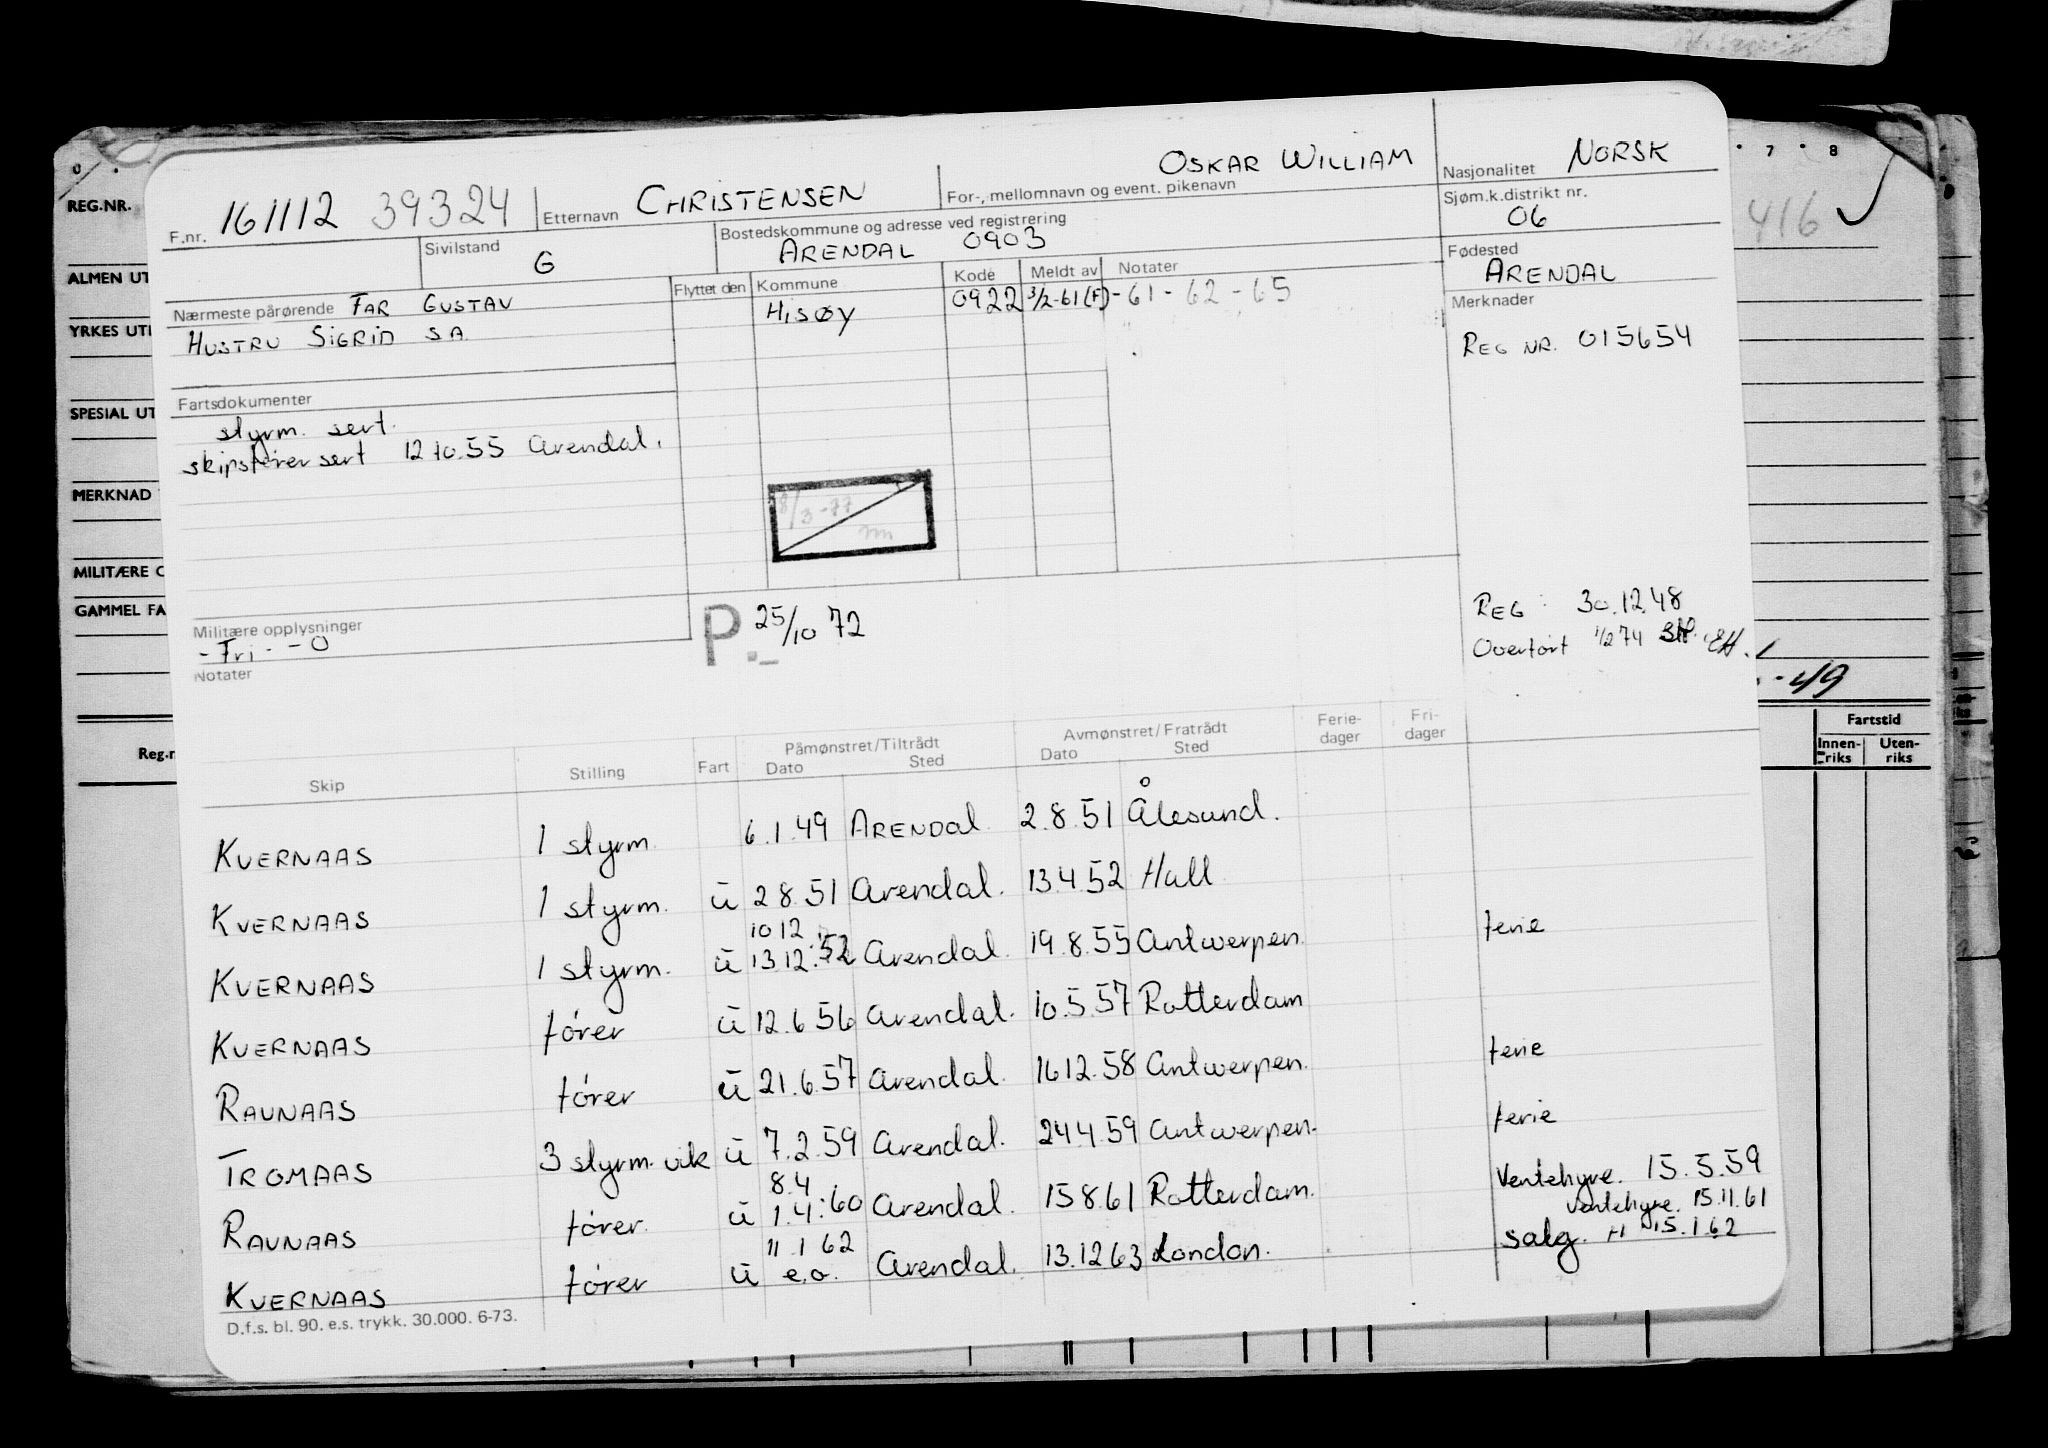 REG.NR.
ALMEN UT
YRKES UT
SPESIAL UT
MERKNAD
MILITÆRE
GAMMEL FA
Reg.n
7 8
416
- 49
Fartstid
Innen-riks Uten-riks
F.nr. 161112 39324 Etternavn CHRISTENSEN For-, mellomnavn og event. pikenavn OSKAR WILLIAM Nasjonalitet NORSK
Sivilstand G Bostedskommune og adresse ved registrering ARENDAL 0903 Sjøm.k.distrikt nr. 06
Nærmeste pårørende FAR GUSTAV Flyttet den Kommune Kode Meldt av Notater Fødested ARENDAL
HUSTRU SIGRID SA. HISØY 0922 3/2-61(F) -61-62-65 Merknader
REG NR. 015654
Fartsdokumenter
styrm. sert.
skipsfører sert 12.10.55 Arendal.
8/3-77
Militære opplysninger
- Fri - - 0
P. 25/10 72
REG: 30.12.48
Overført 1/2 74
Notater
Skip Stilling Fart Påmønstret/Tiltrådt Dato Sted Avmønstret/Fratrådt Dato Sted Ferie-dager Fri-dager
KVERNAAS 1 styrm 6.1.49 ARENDAL 2.8.51 Ålesund.
KVERNAAS 1 styrm. u 2 8.51 Arendal. 13.4.52 Hull
KVERNAAS 1 styrm. u 10 12 13 12.52 Arendal. 19.8.55 Antwerpen. ferie
KVERNAAS fører u 12.6 56 Arendal. 10.5.57 Rotterdam
RAVNAAS fører u 21.6.57 Arendal. 16 12.58 Antwerpen. ferie
TROMAAS 3 styrm. vik u 7.2.59 Arendal. 24 4.59 Antwerpen. ferie
RAVNAAS fører. u 8.4 1.4.60 Arendal. 15 8 61 Rotterdam. Ventehyre. 15.5.59
Ventehyre. 15.11.61
KVERNAAS fører u 11 1 62 e.o. Arendal. 13.12 63 London. salg. 15.1.62
D.f.s. bl. 90. e.s. trykk. 30.000. 6-73.